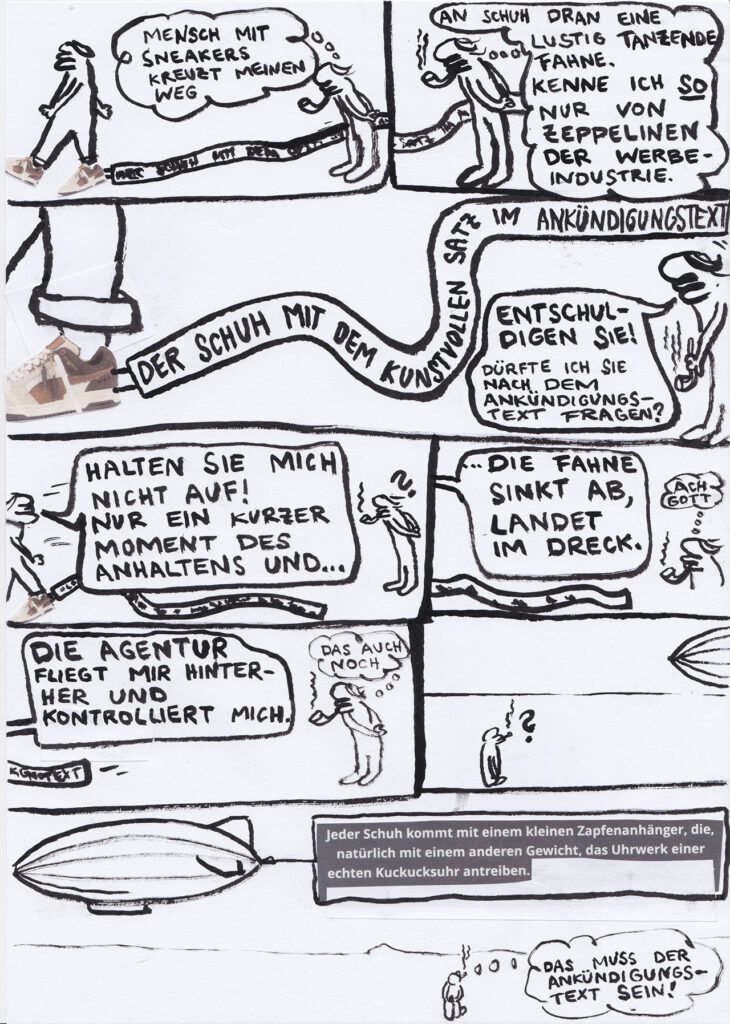 MENSCH MIT
SNEAKERS
KREUZT MEINEN
WEG
AN SCHUH DRAN EINE
LUSTIG TANZENDE
FAHNE.
KENNE ICH SO
NUR VON
ZEPPELINEN
DER WERBE-
INDUSTRIE.
DER SCHUH MIT DEM KUNSTVOLLEN SATZ IM ANKÜNDIGUNGSTEXT
ENTSCHUL-
DIGEN SIE!
DÜRFTE ICH SIE
NACH DEM
ANKÜNDIGUNGS-
TEXT FRAGEN?
HALTEN SIE MICH
NICHT AUF!
NUR EIN KURZER
MOMENT DES
ANHALTENS UND...
?
...DIE FAHNE
SINKT AB,
LANDET
IM DRECK.
ACH
GOTT
DIE AGENTUR
FLIEGT MIR HINTER-
HER UND
KONTROLLIERT MICH.
DAS AUCH
NOCH
?
Jeder Schuh kommt mit einem kleinen Zapfenanhänger, die,
natürlich mit einem anderen Gewicht, das Uhrwerk einer
echten Kuckucksuhr antreiben.
DAS MUSS DER
ANKÜNDIGUNGS-
TEXT SEIN!